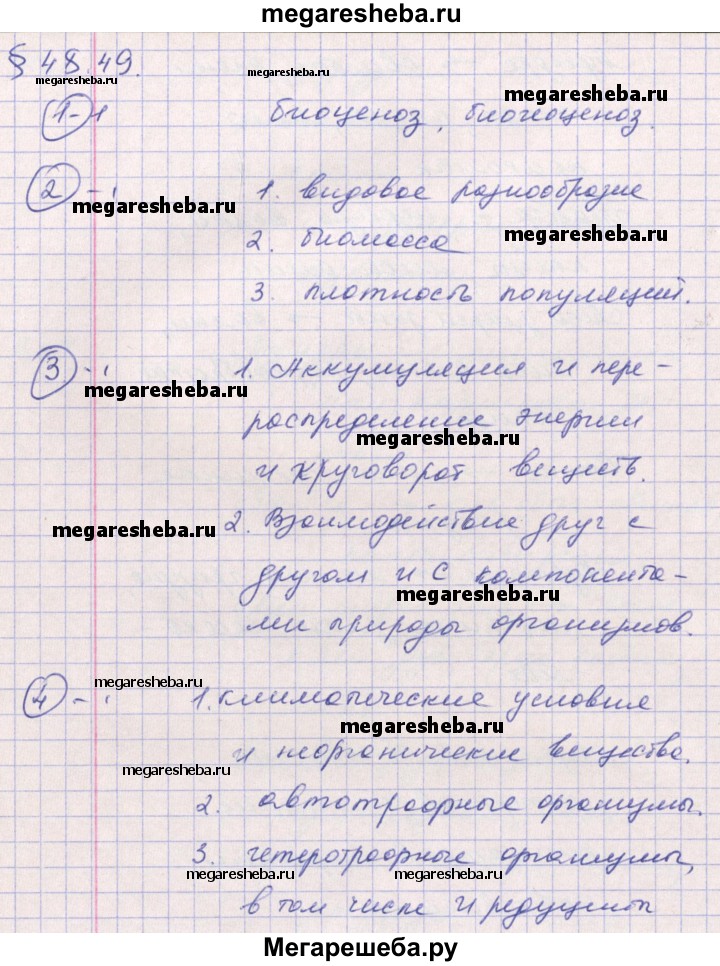 megaresheba.ru
§ 48.49.
megaresheba.ru megaresheba.ru
megaresheba.ru
1 - 1 биоценоз, биогеоценоз.
2 - 1. видовое разнообразие
megaresheba.ru
2. биомасса megaresheba.ru
3. плотность популяций.
3 - 1. Аккумуляция и пере-
megaresheba.ru
распределение энергии
megaresheba.ru
и круговорот веществ.
megaresheba.ru 2. Взаимодействие друг с
другом и с компонента-
megaresheba.ru
ми природы организмов.
megaresheba.ru
4 - 1. климатические условия
megaresheba.ru
и неорганические вещества.
megaresheba.ru
2. автотрофные организмы.
3. гетеротрофные организмы,
megaresheba.ru megaresheba.ru
в том числе и редуценты
Мегарешеба.ру